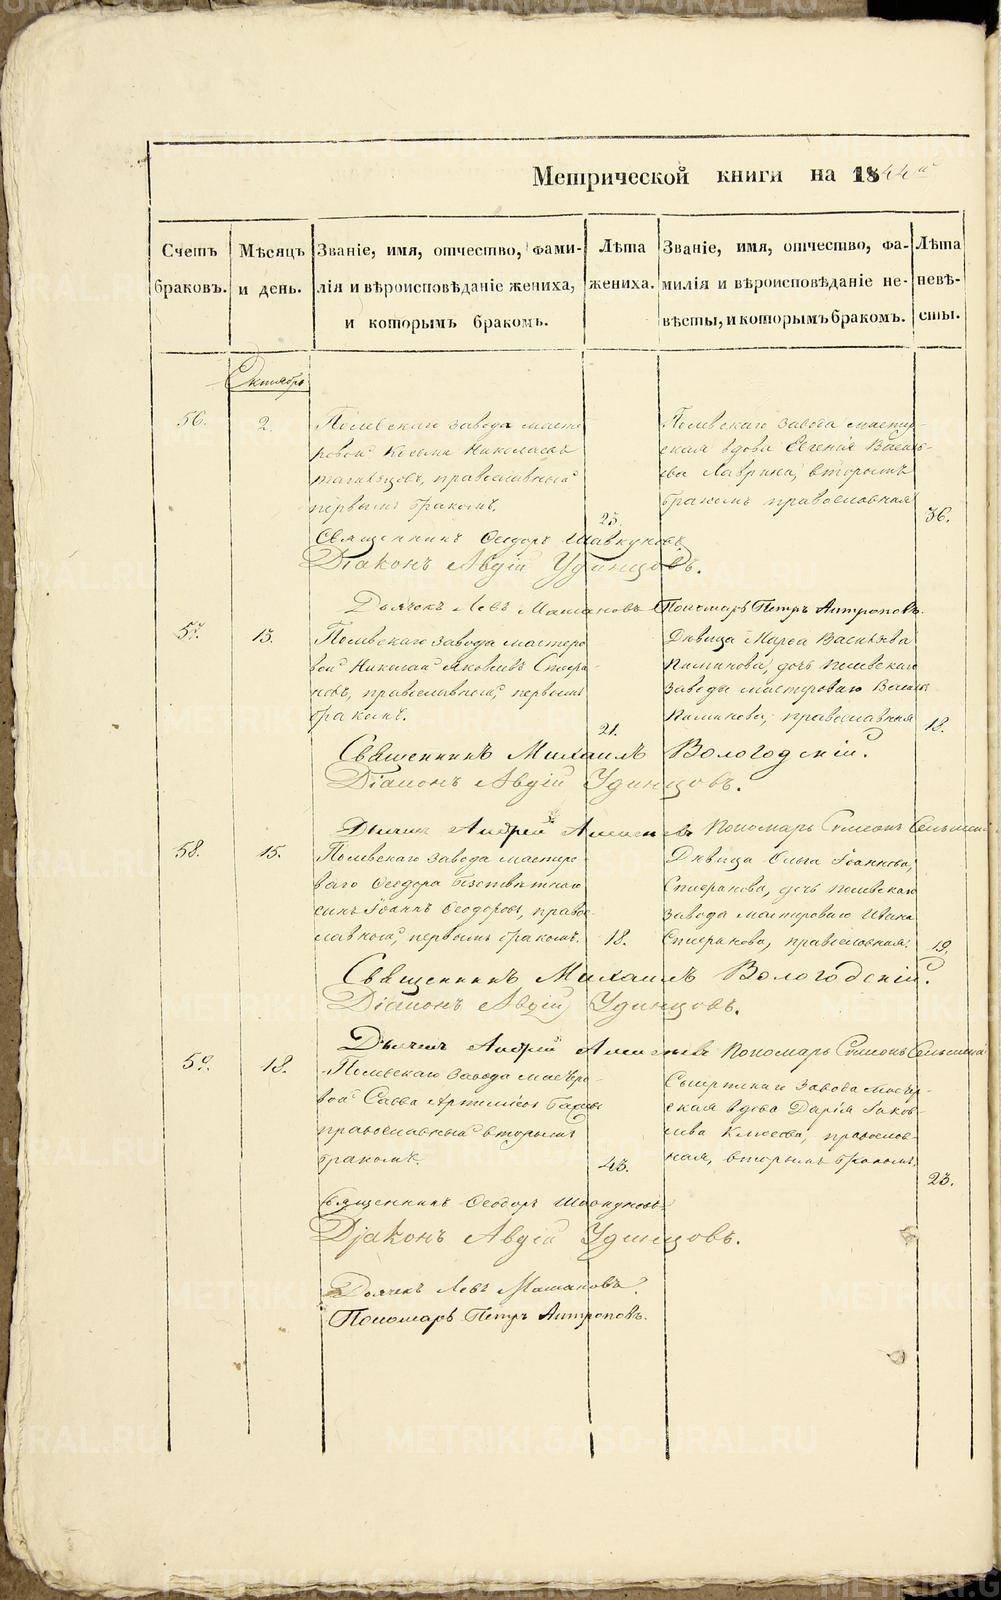 Метрической книги на 1844й
Счетъ браковъ.
Мѣсяцъ и день.
Званіе, имя, отчество, фами-
лія и вѣроисповѣданіе жениха,
и которымъ бракомъ.
Лѣта
жениха.
Званіе, имя, отчество, фа-
милія и вѣроисповѣданіе не-
вѣсты, и которымъ бракомъ.
Лѣта
невѣ-
сты.
Октябрь
56.
2.
Полевскаго завода масте
ровой Козьма Николаевъ
православный
первымъ бракомъ.
25.
Полевскаго завода мастер-
ская вдова Евгенія Василь-
ева Лаврина, вторымъ
бракомъ православная
36.
Священникъ Ѳеодоръ Шавкуновъ
Діаконъ Авдій Удинцовъ.
Дьячекъ Левъ Машановъ Пономарь Петръ Антроповъ.
57.
13.
Полевскаго завода мастеро
вой Николай Яковлевъ Спира-
новъ, православной, первымъ
бракомъ.
21.
Дѣвица Марѳа Васильева
дочь полевскаго
завода мастероваго Васил
православная
18.
Священникъ Михаилъ Вологодскій.
Діаконъ Авдій Удинцовъ.
Дьячекъ Андрей Пономарь Симеонъ
58.
15.
Полевскаго завода мастеро-
ваго Ѳеодора Безсвѣтнаго
сынъ Іоаннъ Ѳеодоровъ, право-
славной, первымъ бракомъ.
18.
Дѣвица Ольга Іоаннова,
Спиранова, дочь полевскаго
завода мастероваго Ивана
Спиранова, православная.
19.
Священникъ Михаилъ Вологодскій.
Діаконъ Авдій Удинцовъ.
Дьячекъ Андрей Пономарь Симеонъ
59.
18.
Полевскаго завода мастеро-
вой Савва Артемьевъ
православный вторымъ
бракомъ.
43.
Сысертскаго завода мастер-
ская вдова Дарія Яков-
лева православ-
ная, вторымъ бракомъ.
23.
Священникъ Ѳеодоръ Шавкуновъ
Діаконъ Авдій Удинцовъ.
Дьячекъ Левъ Машановъ.
Пономарь Петръ Антроповъ.
METRIKI.GASO-URAL.RU